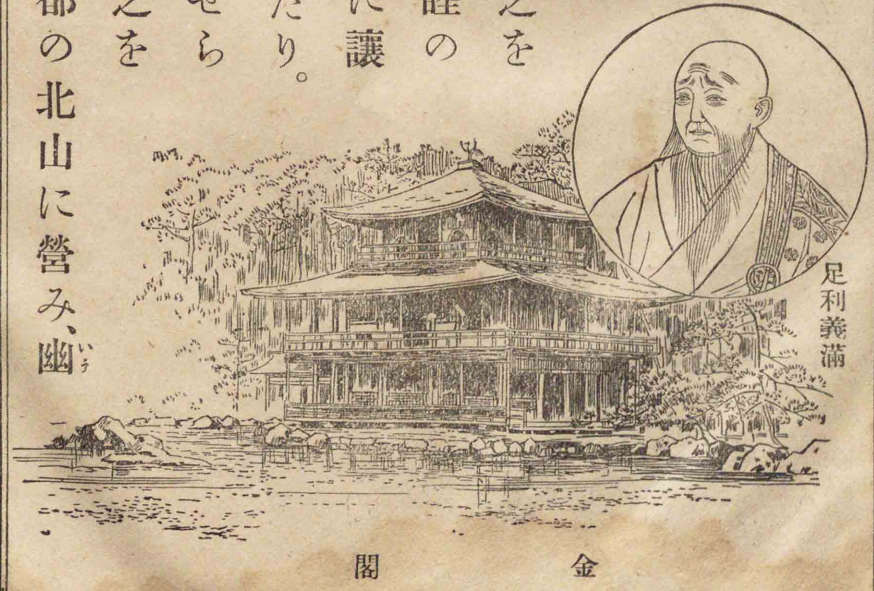 足利義滿
之を
の
に讓
たり。
せら
之を
都の北山に營み、幽
いう
金閣